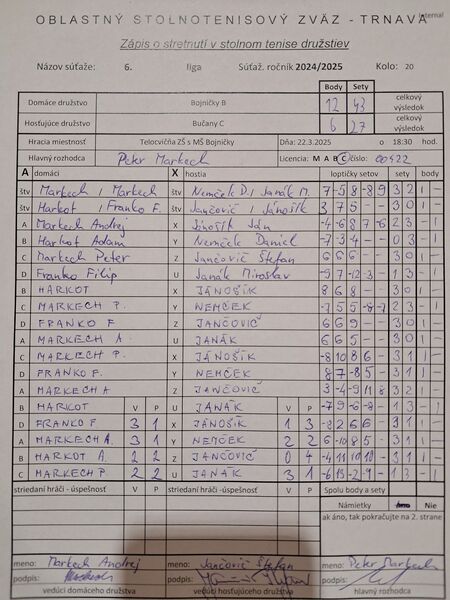 Internal
OBLASTNÝ STOLNOTENISOVÝ ZVÄZ - TRNAVA
Zápis o stretnutí v stolnom tenise družstiev
Názov súťaže: 6. liga Súťaž. ročník 2024/2025 Kolo: 20
Body Sety
Domáce družstvo Bojničky B 12 43 celkový výsledok
Hosťujúce družstvo Bučany C 6 27 celkový výsledok
Hracia miestnosť Telocvičňa ZŠ s MŠ Bojničky Dňa: 22.3.2025 o 18:30 hod.
Hlavný rozhodca Peter Markech Licencia: M A B C číslo: 00422
A domáci X hostia loptičky setov sety body
štv Markech / Markech štv Nemček D / Janák M. 7 -5 8 -8 9 3 2 1 -
štv Harkot / Franko F. štv Jančovič / Jánošík 3 7 5 - - 3 0 1 -
A Markech Andrej X Jánošík Ján -4 -6 8 7 -6 2 3 - 1
B Harkot Adam Y Nemček Daniel -7 -3 -4 - - 0 3 - 1
C Markech Peter Z Jančovič Štefan 6 6 6 - - 3 0 1 -
D Franko Filip U Janák Miroslav -9 7 -12 -3 - 1 3 - 1
B HARKOT X JÁNOŠÍK 8 6 8 - - 3 0 1 -
C MARKECH P. Y NEMČEK -7 5 5 -8 -7 2 3 - 1
D FRANKO F Z JANČOVIČ 6 6 9 - - 3 0 1 -
A MARKECH A. U JANÁK 6 6 5 - - 3 0 1 -
C MARKECH P. X JÁNOŠÍK -8 10 8 6 - 3 1 1 -
D FRANKO F. Y NEMČEK 8 7 -8 5 - 3 1 1 -
A MARKECH A Z JANČOVIČ 3 -4 -9 11 8 3 2 1 -
B HARKOT V P U JANÁK V P -7 9 -6 -8 - 1 3 - 1
D FRANKO F 3 1 X JÁNOŠÍK 1 3 -8 2 6 6 - 3 1 1 -
A MARKECH A. 3 1 Y NEMČEK 2 2 6 -10 8 5 - 3 1 1 -
B HARKOT A 2 2 Z JANČOVIČ 0 4 -4 11 10 10 - 3 1 1 -
C MARKECH P. 2 2 U JANÁK 3 1 -6 13 -2 -9 - 1 3 - 1
striedaní hráči - úspešnosť V P striedaní hráči -úspešnosť V P Spolu body a sety
Námietky Áno Nie
ak áno, tak pokračujte na 2. strane
meno: Markech Andrej meno: Jančovič Štefan meno: Peter Markech
podpis: podpis: podpis:
vedúci domáceho družstva vedúci hosťujúceho družstva hlavný rozhodca